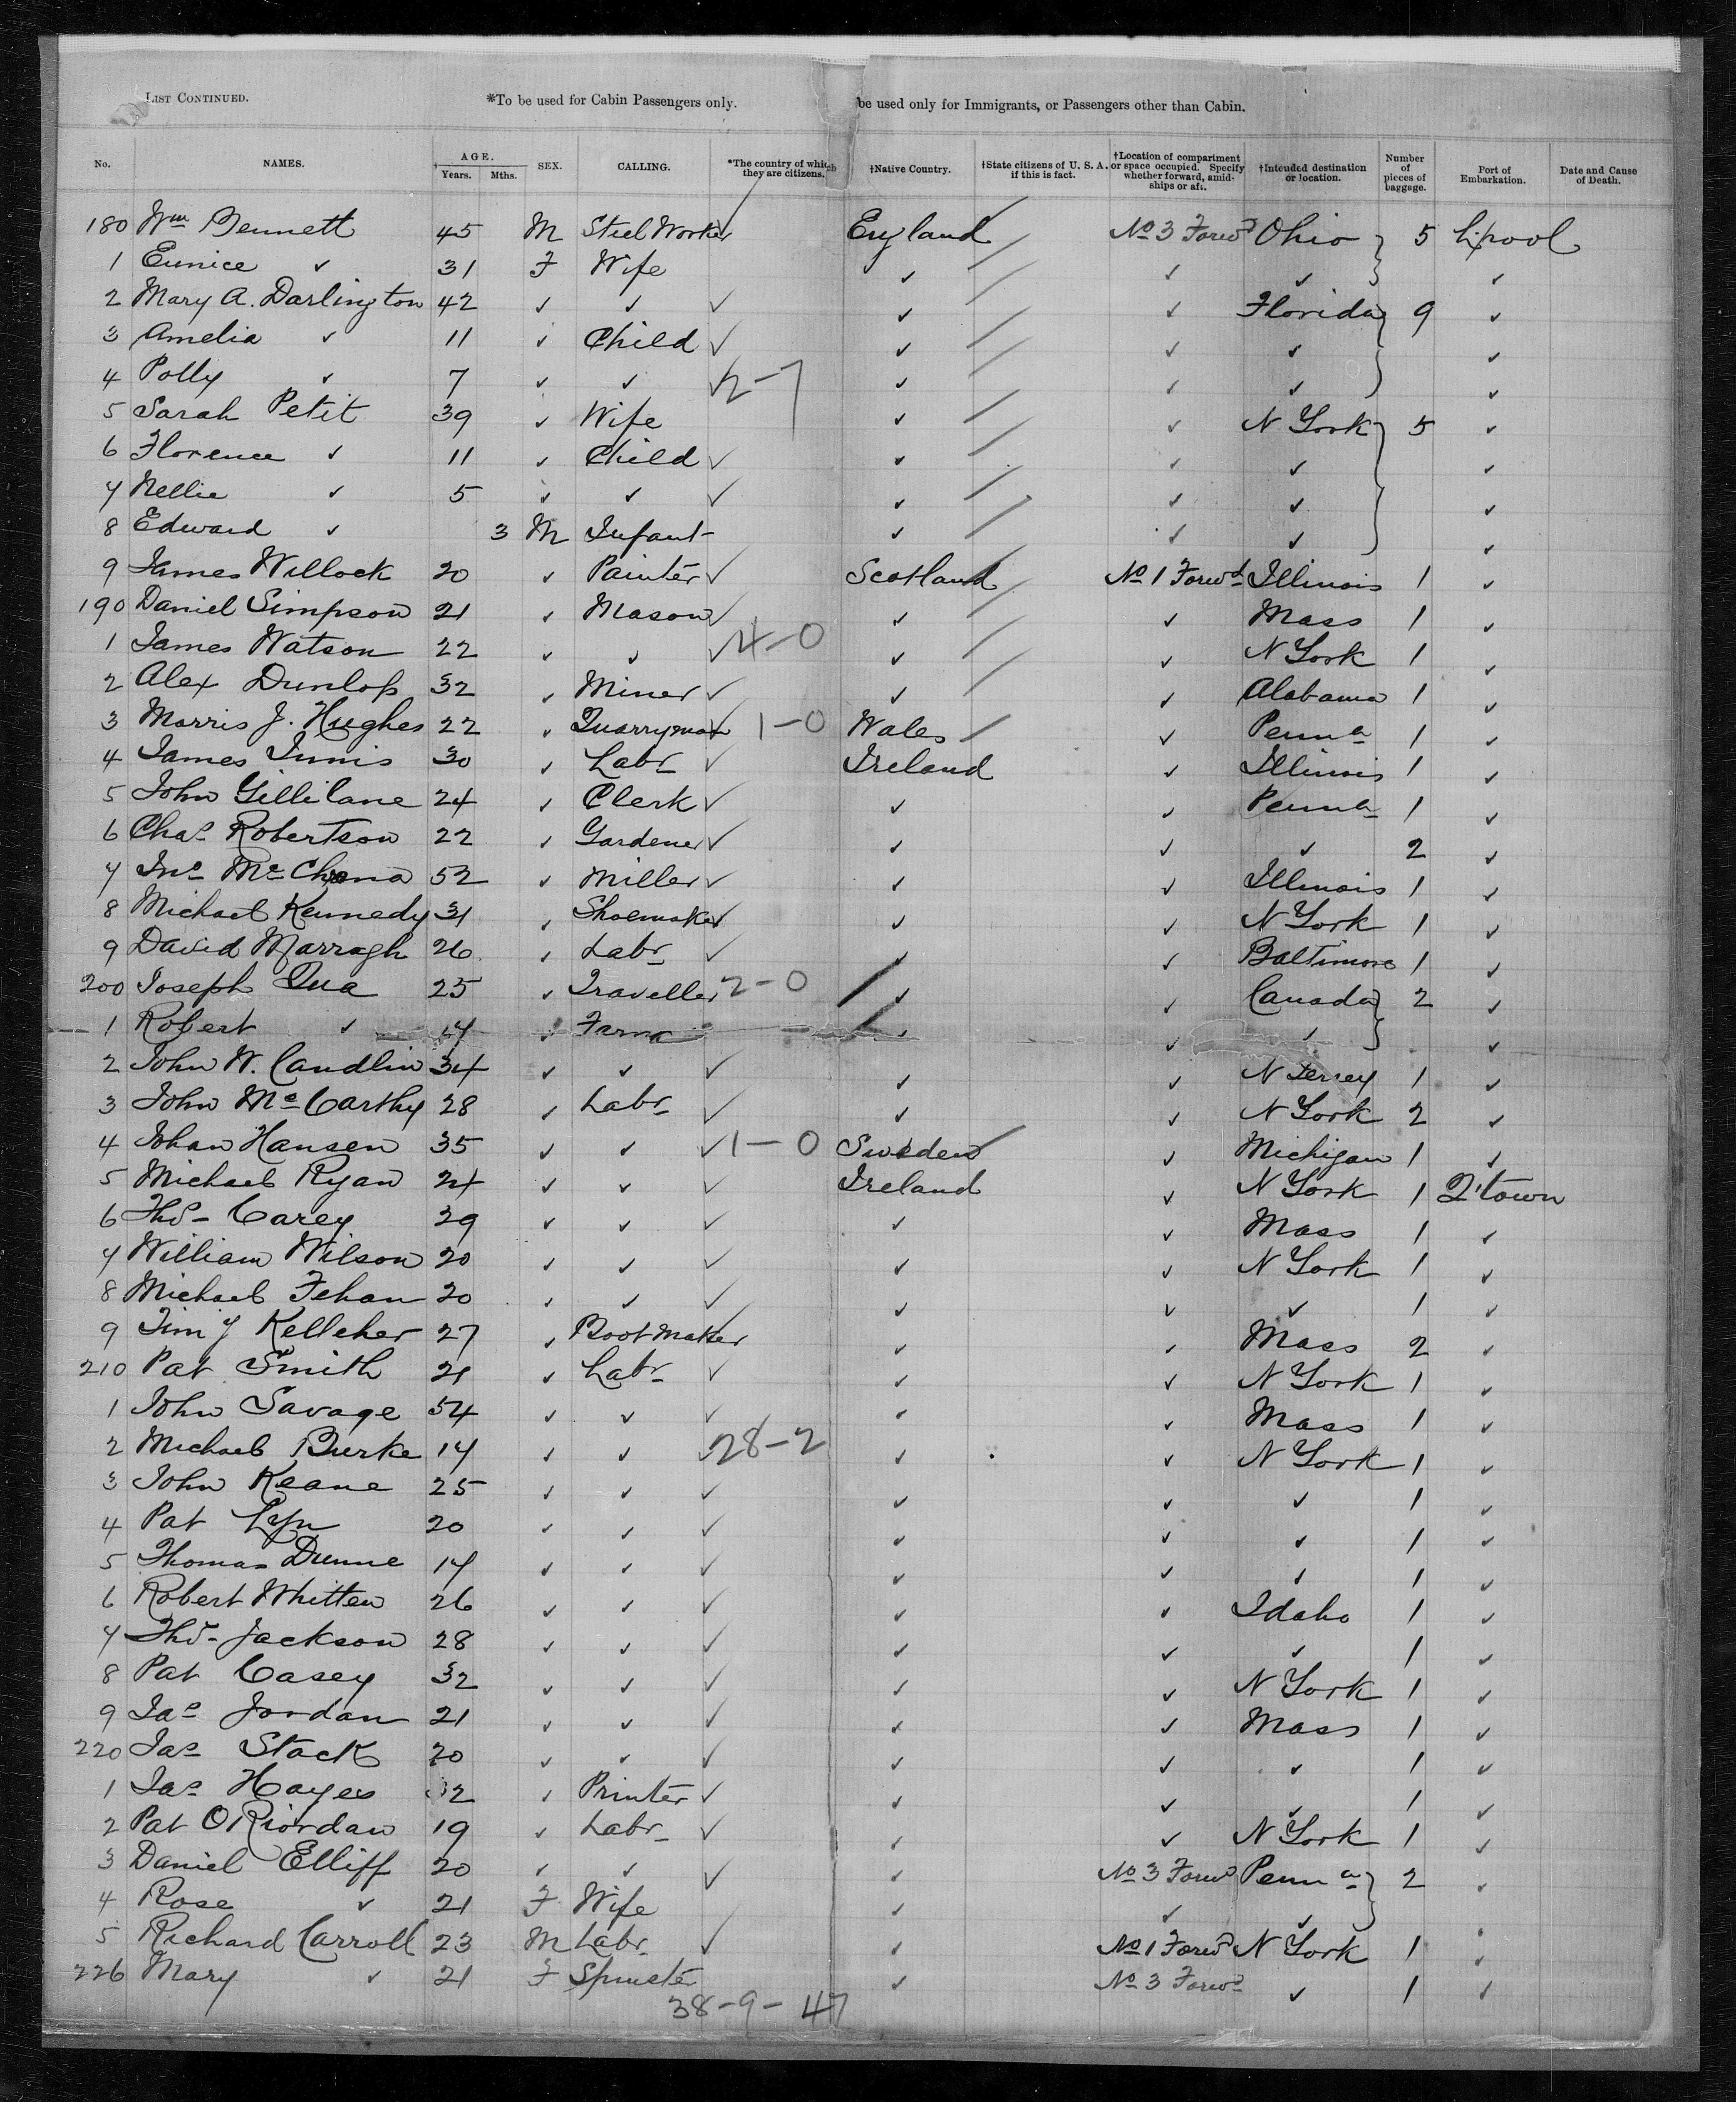 LIST CONTINUED. *To be used for Cabin Passengers only. be used only for Immigrants, or Passengers other than Cabin.
No. NAMES. AGE. Years. Mths. SEX. CALLING. *The country of which they are citizens. †Native Country. †State citizens of U. S. A. if this is fact. †Location of compartment or space occupied. Specify whether forward, amidships or aft. †Intended destination or location. Number of pieces of baggage. Port of Embarkation. Date and Cause of Death.
180 Wm Bennett 45 M Steel Worker ✓ England No 3 Forwd Ohio 5 L'pool
1 Eunice ✓ 31 F Wife ✓ ✓ ✓ ✓
2 Mary A. Darlington 42 ✓ ✓ ✓ ✓ ✓ Florida 9 ✓
3 Amelia ✓ 11 ✓ Child ✓ ✓ ✓ ✓ ✓
4 Polly ✓ 7 ✓ ✓ ✓ 2-7 ✓ ✓ ✓ ✓
5 Sarah Petit 39 ✓ Wife ✓ ✓ N York 5 ✓
6 Florence ✓ 11 ✓ Child ✓ ✓ ✓ ✓ ✓
7 Nellie ✓ 5 ✓ ✓ ✓ ✓ ✓ ✓ ✓
8 Edward ✓ 3 M Infant ✓ ✓ ✓ ✓
9 James Willock 20 ✓ Painter ✓ Scotland No 1 Forwd Illinois 1 ✓
190 Daniel Simpson 21 ✓ Mason ✓ ✓ ✓ Mass 1 ✓
1 James Watson 22 ✓ ✓ ✓ 4-0 ✓ ✓ N York 1 ✓
2 Alex Dunlop 32 ✓ Miner ✓ ✓ ✓ Alabama 1 ✓
3 Morris J. Hughes 22 ✓ Quarryman ✓ 1-0 Wales ✓ Penna 1 ✓
4 James Innis 30 ✓ Labr ✓ Ireland ✓ Illinois 1 ✓
5 John Gillilane 24 ✓ Clerk ✓ ✓ ✓ Penna 1 ✓
6 Chas Robertson 22 ✓ Gardener ✓ ✓ ✓ ✓ 2 ✓
7 Jno 52 ✓ Miller ✓ ✓ ✓ Illinois 1 ✓
8 Michael Kennedy 31 ✓ Shoemaker ✓ ✓ ✓ N York 1 ✓
9 David Marragh 26 ✓ Labr ✓ ✓ ✓ Baltimore 1 ✓
200 Joseph Qua 25 ✓ Traveller 2-0 ✓ ✓ Canada 2 ✓
1 Robert ✓ 17 ✓ Farmr ✓ ✓ ✓ ✓
2 John W. Candlin 34 ✓ ✓ ✓ ✓ ✓ N Jersey 1 ✓
3 John McCarthy 28 ✓ Labr ✓ ✓ ✓ N York 2 ✓
4 Johan Hansen 35 ✓ ✓ ✓ 1-0 Sweden ✓ Michigan 1 ✓
5 Michael Ryan 24 ✓ ✓ ✓ Ireland ✓ N York 1 Q'town
6 Thos Carey 29 ✓ ✓ ✓ ✓ ✓ Mass 1 ✓
7 William Wilson 20 ✓ ✓ ✓ ✓ ✓ N York 1 ✓
8 Michael Fehan 20 ✓ ✓ ✓ ✓ ✓ ✓ 1 ✓
9 Timy Kelleher 27 ✓ Boot Maker ✓ ✓ Mass 2 ✓
210 Pat Smith 21 ✓ Labr ✓ ✓ ✓ N York 1 ✓
1 John Savage 54 ✓ ✓ ✓ ✓ ✓ Mass 1 ✓
2 Michael Burke 17 ✓ ✓ ✓ 28-2 ✓ ✓ N York 1 ✓
3 John Keane 25 ✓ ✓ ✓ ✓ ✓ ✓ 1 ✓
4 Pat 20 ✓ ✓ ✓ ✓ ✓ ✓ 1 ✓
5 Thomas Dunne 17 ✓ ✓ ✓ ✓ ✓ ✓ 1 ✓
6 Robert Whitten 26 ✓ ✓ ✓ ✓ ✓ Idaho 1 ✓
7 Thos Jackson 28 ✓ ✓ ✓ ✓ ✓ ✓ 1 ✓
8 Pat Casey 32 ✓ ✓ ✓ ✓ ✓ N York 1 ✓
9 Jas Jordan 21 ✓ ✓ ✓ ✓ ✓ Mass 1 ✓
220 Jas Stack 20 ✓ ✓ ✓ ✓ ✓ ✓ 1 ✓
1 Jas Hayes 32 ✓ Printer ✓ ✓ ✓ ✓ 1 ✓
2 Pat O Riordan 19 ✓ Labr ✓ ✓ ✓ N York 1 ✓
3 Daniel Elliff 20 ✓ ✓ ✓ ✓ No 3 Forwd Penna 2 ✓
4 Rose ✓ 21 F Wife ✓ ✓ ✓
5 Richard Carroll 23 M Labr ✓ ✓ No 1 Forwd N York 1 ✓
226 Mary ✓ 21 F Spinster ✓ No 3 Forwd ✓ 1 ✓
38-9-47